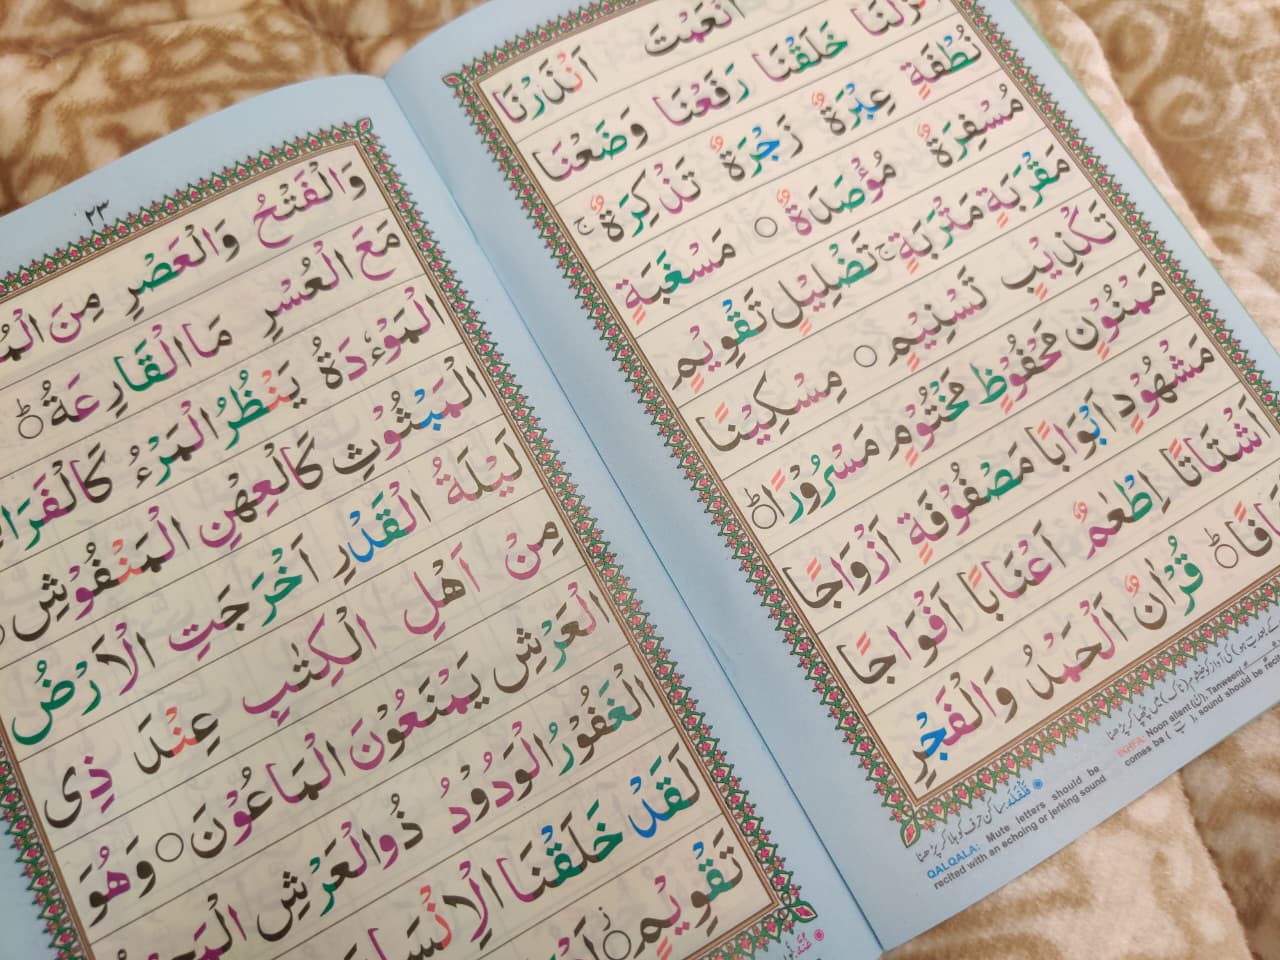 اَنْعَمْتَ اَنْذَرْنَا
خَلَقْنَا رَفَعْنَا وَضَعْنَا
نُطْفَةٍ عِبْرَةٌ زَجْرَةٌ تَذْكِرَةٌ ۚ
مُسْفِرَةٌ مُؤْصَدَةٌ ○ مَسْغَبَةٍ
مَقْرَبَةٍ مَتْرَبَةٍ ۚ تَضْلِيْلٍ تَقْوِيْمٍ
تَكْذِيْبٍ تَسْنِيْمٍ ○ مِسْكِيْنًا
مَمْنُوْنٍ مَحْفُوْظٍ مَخْتُوْمٍ مَسْرُوْرًا ○ؕ
مَشْهُوْدٍ اَبْوَابًا مَصْفُوْفَةٍ اَزْوَاجًا
اَشْتَاتًا اِطْعٰمٌ اَعْنَابًا اَفْوَاجًا
○ؕ قُرْاٰنٌ اَلْحَمْدُ وَالْفَجْرِ
قلقلہ: ساکن حرف کو ہلا کر پڑھنا
QALQALA: Mute letters should be
recited with an echoing or jerking sound
IKHFA: Noon silent (نْ), Tanween
comes be
sound should be
٢٣
وَالْفَتْحُ وَالْعَصْرِ مِنَ
مَعَ الْعُسْرِ مَا الْقَارِعَةُ ○ؕ
الْمَوْءٗدَةُ يَنْظُرُ الْمَرْءُ
الْمَبْثُوْثِ كَالْعِهْنِ الْمَنْفُوْشِ
لَيْلَةُ الْقَدْرِ اَخْرَجَتِ الْاَرْضُ
مِنْ اَهْلِ الْكِتٰبِ عِنْدَ ذِى
الْعَرْشِ يَمْنَعُوْنَ الْمَاعُوْنَ ○ وَهُوَ
الْغَفُوْرُ الْوَدُوْدُ ذُوالْعَرْشِ
لَقَدْ خَلَقْنَا الْاِنْسَانَ
تَقْوِيْمٍ ○